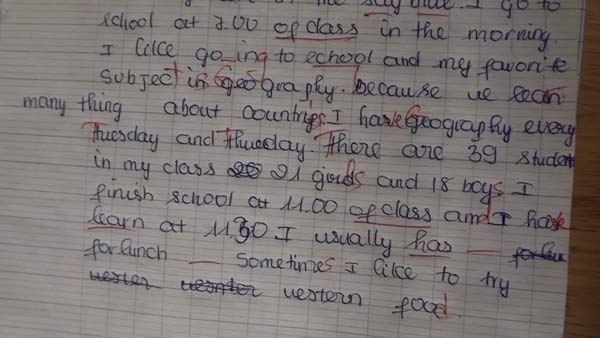 the sky blue. I go to
school at 7.00 of class in the morning.
I like going to echool and my favorite
subject is geography. because we lean
many thing about countries. I have Geography every
Tuesday and Thuesday. There are 39 student
in my class 21 girls and 18 boys I
finish school at 11.00 of class and I have
learn at 11.30 I usually has
for lunch sometimes I like to try
uestern food.